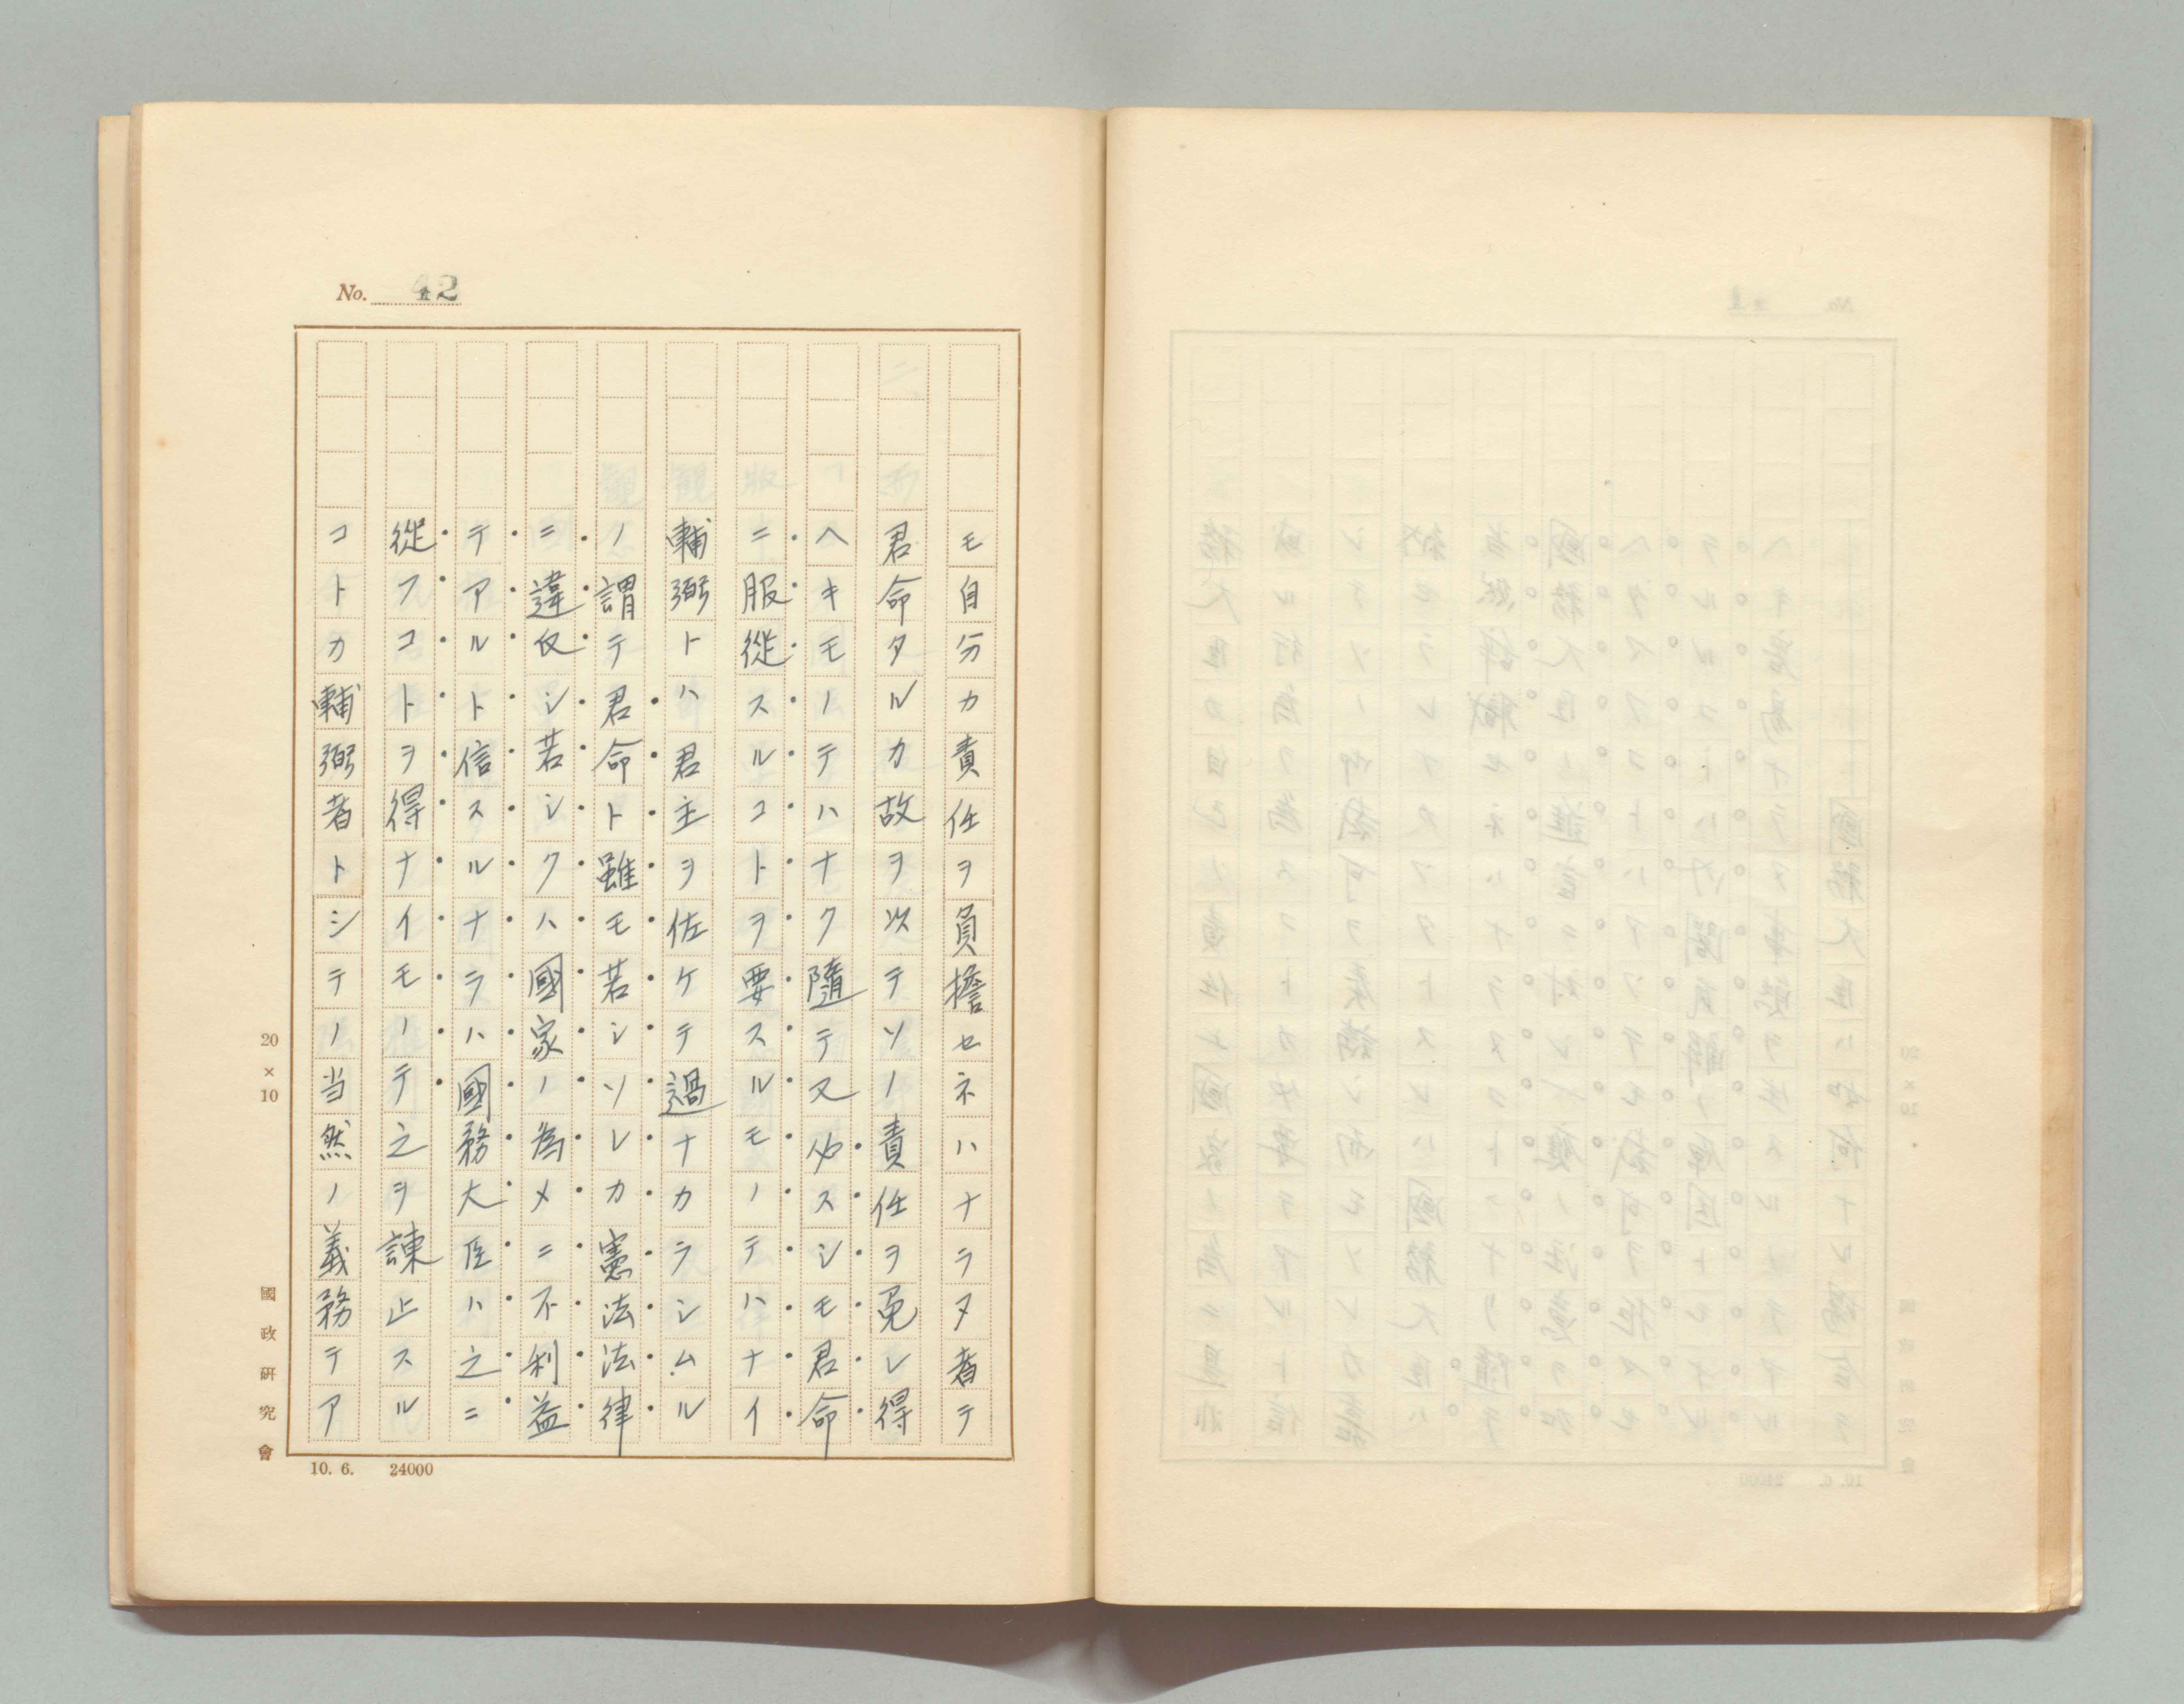 No. 42
モ自分カ責任ヲ負擔セネハナラヌ者テ
君命タルカ故ヲ以テソノ責任ヲ免レ得
ヘキモノテハナク隨テ又必スシモ君命
ニ服從スルコトヲ要スルモノテハナイ
輔弼トハ君主ヲ佐ケテ過ナカラシムル
ノ謂テ君命ト雖モ若シソレカ憲法法律
ニ違反シ若シクハ國家ノ為メニ不利益
テアルト信スルナラハ國務大臣ハ之ニ
從フコトヲ得ナイモノテ之ヲ諫止スル
コトカ輔弼者トシテノ当然ノ義務テア
20×10
國政研究會
10. 6. 24000